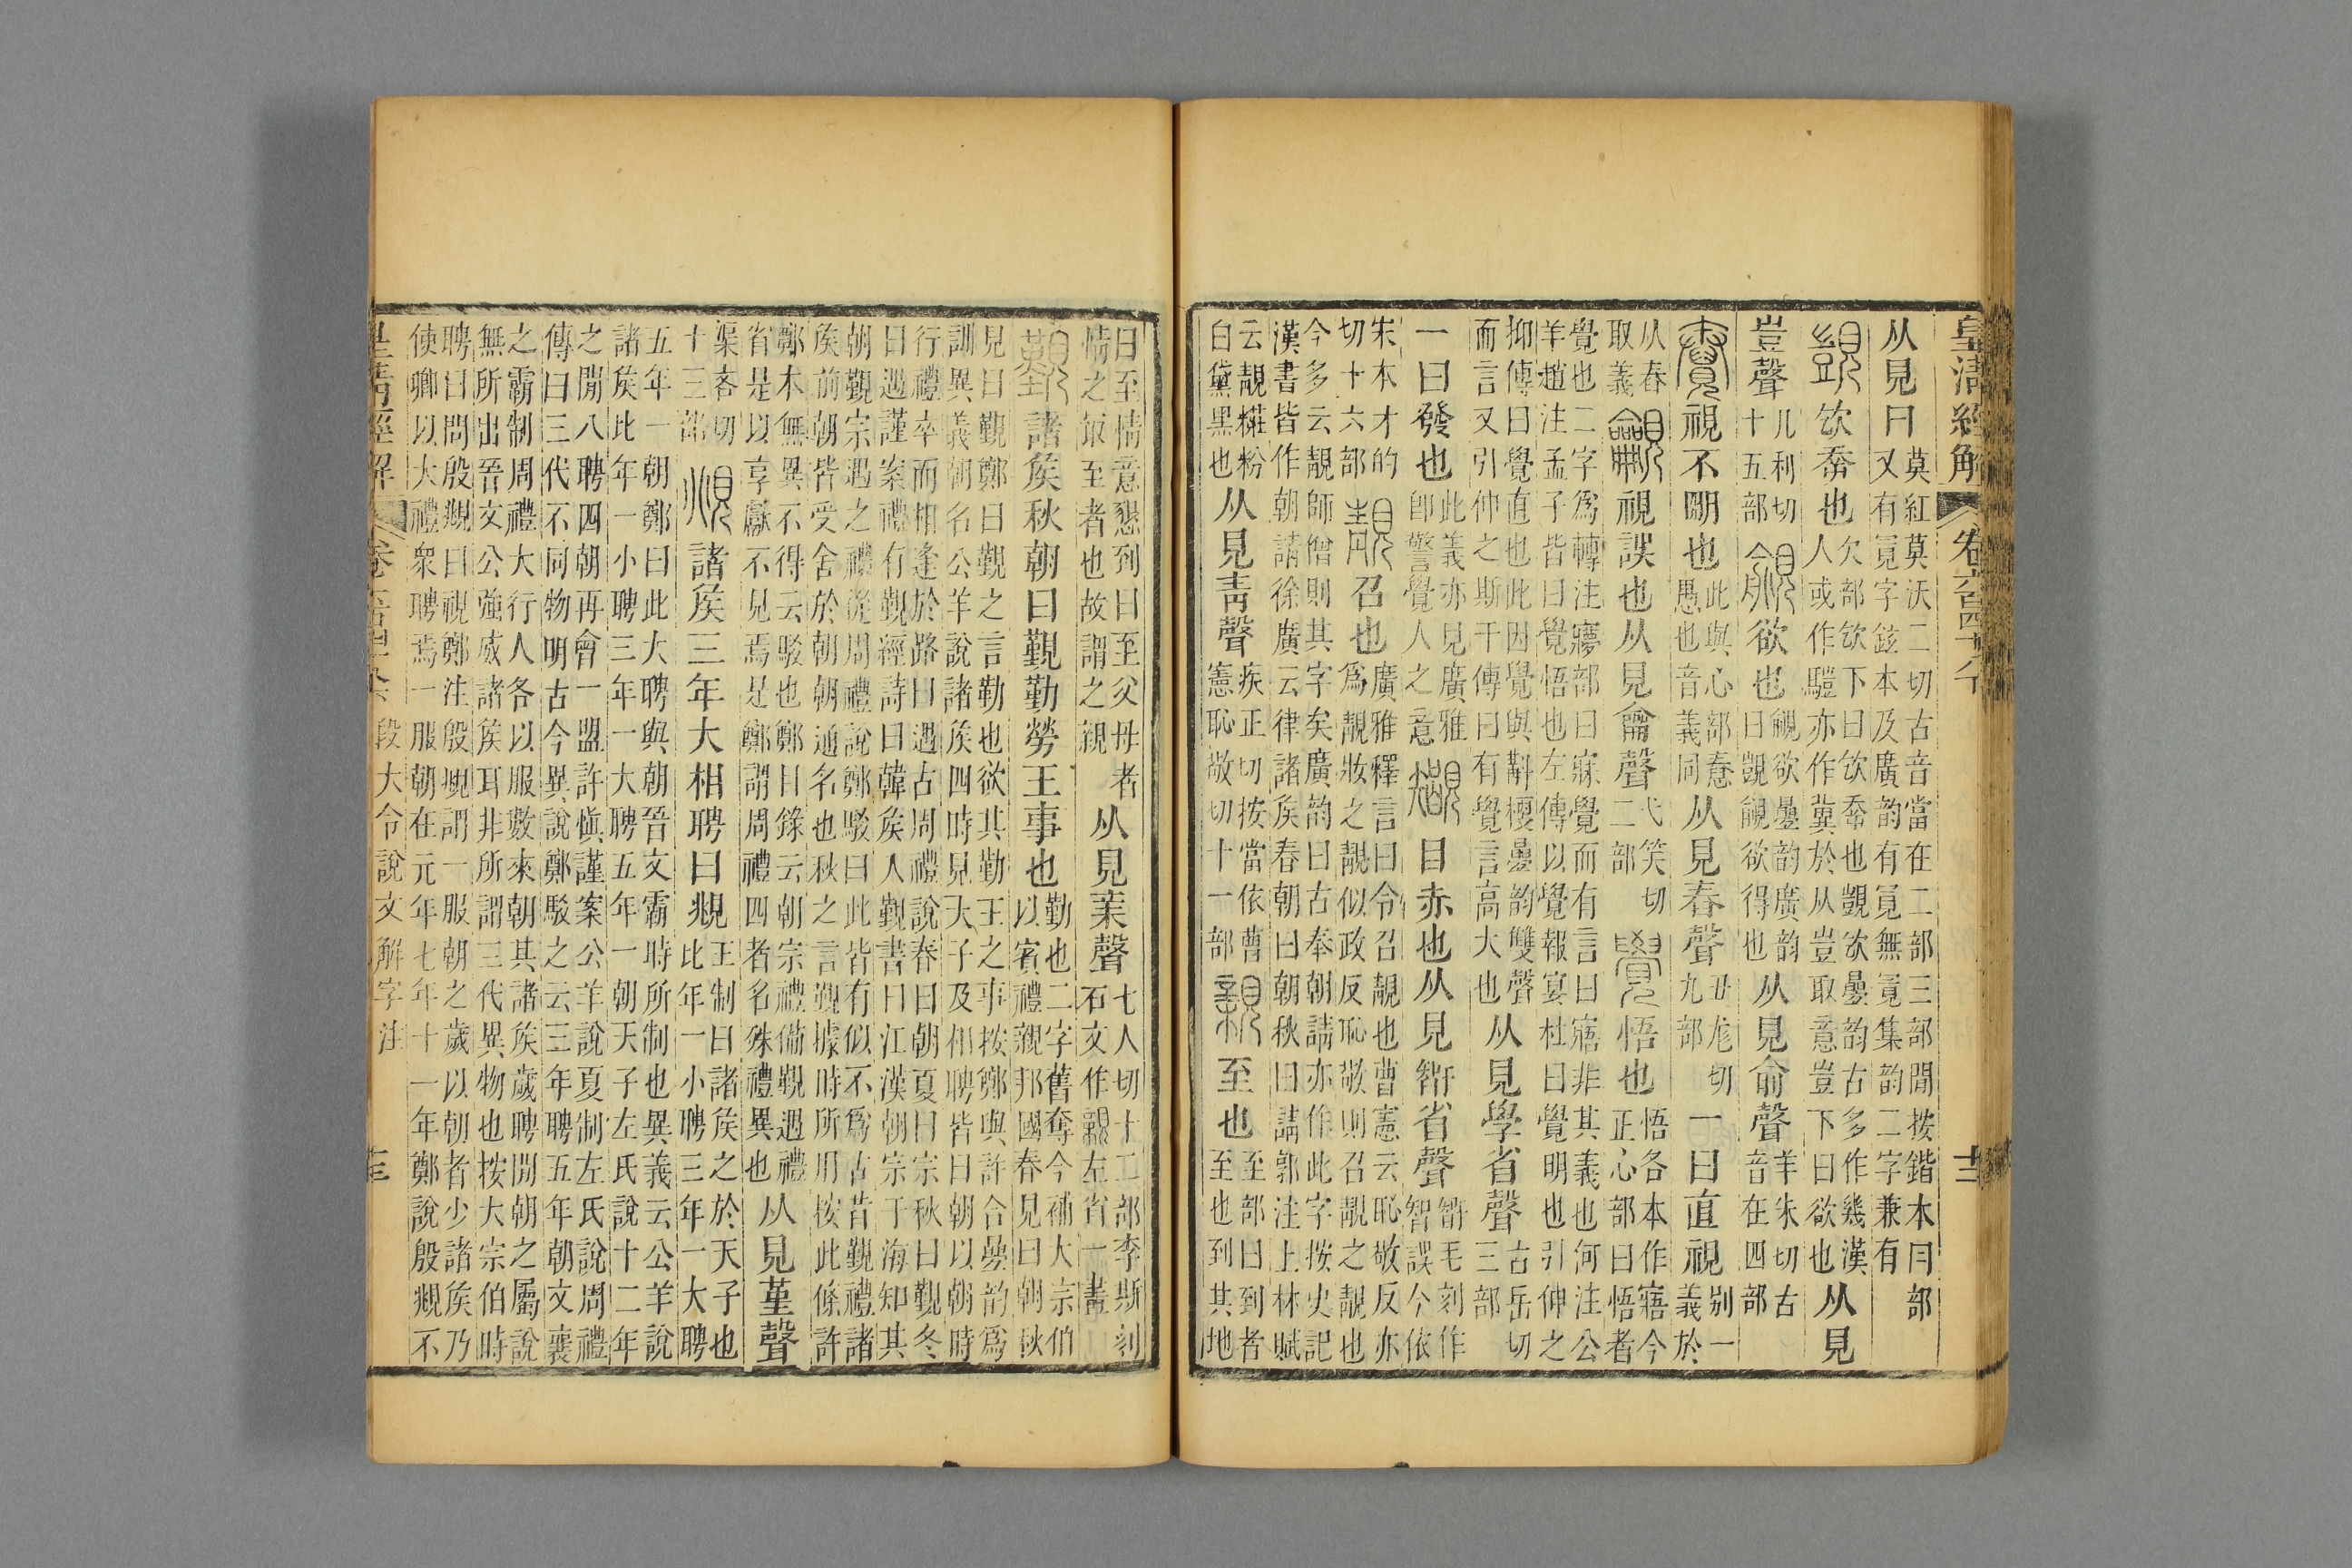 皇清經解 卷六百四十八 十三
从見冃莫紅莫沃二切古音當在二部三部閒按鍇本冃部又有冕字鉉本及廣韵有冕無冕集韵二字兼有
覬㰟𡴘也欠部㰟下曰㰟𡴘也覬欲曡韵古多作幾漢人或作驥亦作冀於从豈取意豈下曰欲也从見
豈聲几利切十五部覦欲也覦欲曡韵廣韵曰覬覦欲得也从見俞聲羊朱切古音在四部
䚎視不朙也此與心部惷愚也音義同从見舂聲丑尨切九部一曰直視别一義於
从舂取義覦視誤也从見龠聲弋笑切二部覺悟也悟各本作寤今正心部曰悟者
覺也二字爲轉注㝱部曰寐覺而有言曰寤非其義也何注公羊趙注孟子皆曰覺悟也左傳以覺報宴杜曰覺明也引伸之
抑傳曰覺直也此因覺與斠㮄曡韵雙聲而言又引伸之斯干傳曰有覺言高大也从見學省聲古岳切三部
一曰發也此義亦見廣雅卽警覺人之意䚅目赤也从見䇓省聲䇓毛刻作智誤今依
宋本才的切十六部靚召也廣雅釋言曰令召靚也曹憲云恥敬反亦爲靚妝之靚似政反恥敬則召靚之靚也
今多云靚師僧則其字矣廣韵曰古奉朝請亦作此字按史記漢書皆作朝請徐廣云律諸矦春朝曰朝秋曰請郭注上林賦
云靚糚粉白黛黑也从見靑聲疾正切按當依曹憲恥敬切十一部親至也至部曰到者至也到其地
曰至情意懇到曰至父母者情之㝡至者也故謂之親从見亲聲七人切十二部李斯刻石文作親左省一畫
覲諸矦秋朝曰覲勤勞王事也勤也二字舊奪今補大宗伯以賓禮親邦國春見曰朝秋
見曰覲鄭曰覲之言勤也欲其勤王之事按鄭與許合曡韵爲訓異義朝名公羊說諸矦四時見天子及相聘皆曰朝以朝時
行禮卒而相逢於路曰遇古周禮說春曰朝夏曰宗秋曰覲冬曰遇謹案禮有覲經詩曰韓矦入覲書曰江漢朝宗于海知其
朝覲宗遇之禮從周禮說鄭駮曰此皆有似不爲古昔覲禮諸矦前朝皆受舍於朝朝通名也秋之言覲據時所用按此條許
鄭本無異不得云駮也鄭目錄云朝宗禮備覲遇禮省是以享獻不見焉是鄭謂周禮四者名殊禮異也从見堇聲
渠吝切十三部覜諸矦三年大相聘曰覜王制曰諸矦之於天子也比年一小聘三年一大聘
五年一朝鄭曰此大聘與朝晉文霸時所制也異義云公羊說諸矦比年一小聘三年一大聘五年一朝天子左氏說十二年
之閒八聘四朝再會一盟許愼謹案公羊說夏制左氏說周禮傳曰三代不同物明古今異說鄭駮之云三年聘五年朝文襄
之霸制周禮大行人各以服數來朝其諸矦歲聘閒朝之屬說無所出晉文公強盛諸矦耳非所謂三代異物也按大宗伯時
聘曰問殷覜曰視鄭注殷覜謂一服朝之歲以朝者少諸矦乃使卿以大禮衆聘焉一服朝在元年七年十一年鄭說殷覜不
皇清經解 卷六百四十八 段大令說文解字注 十三